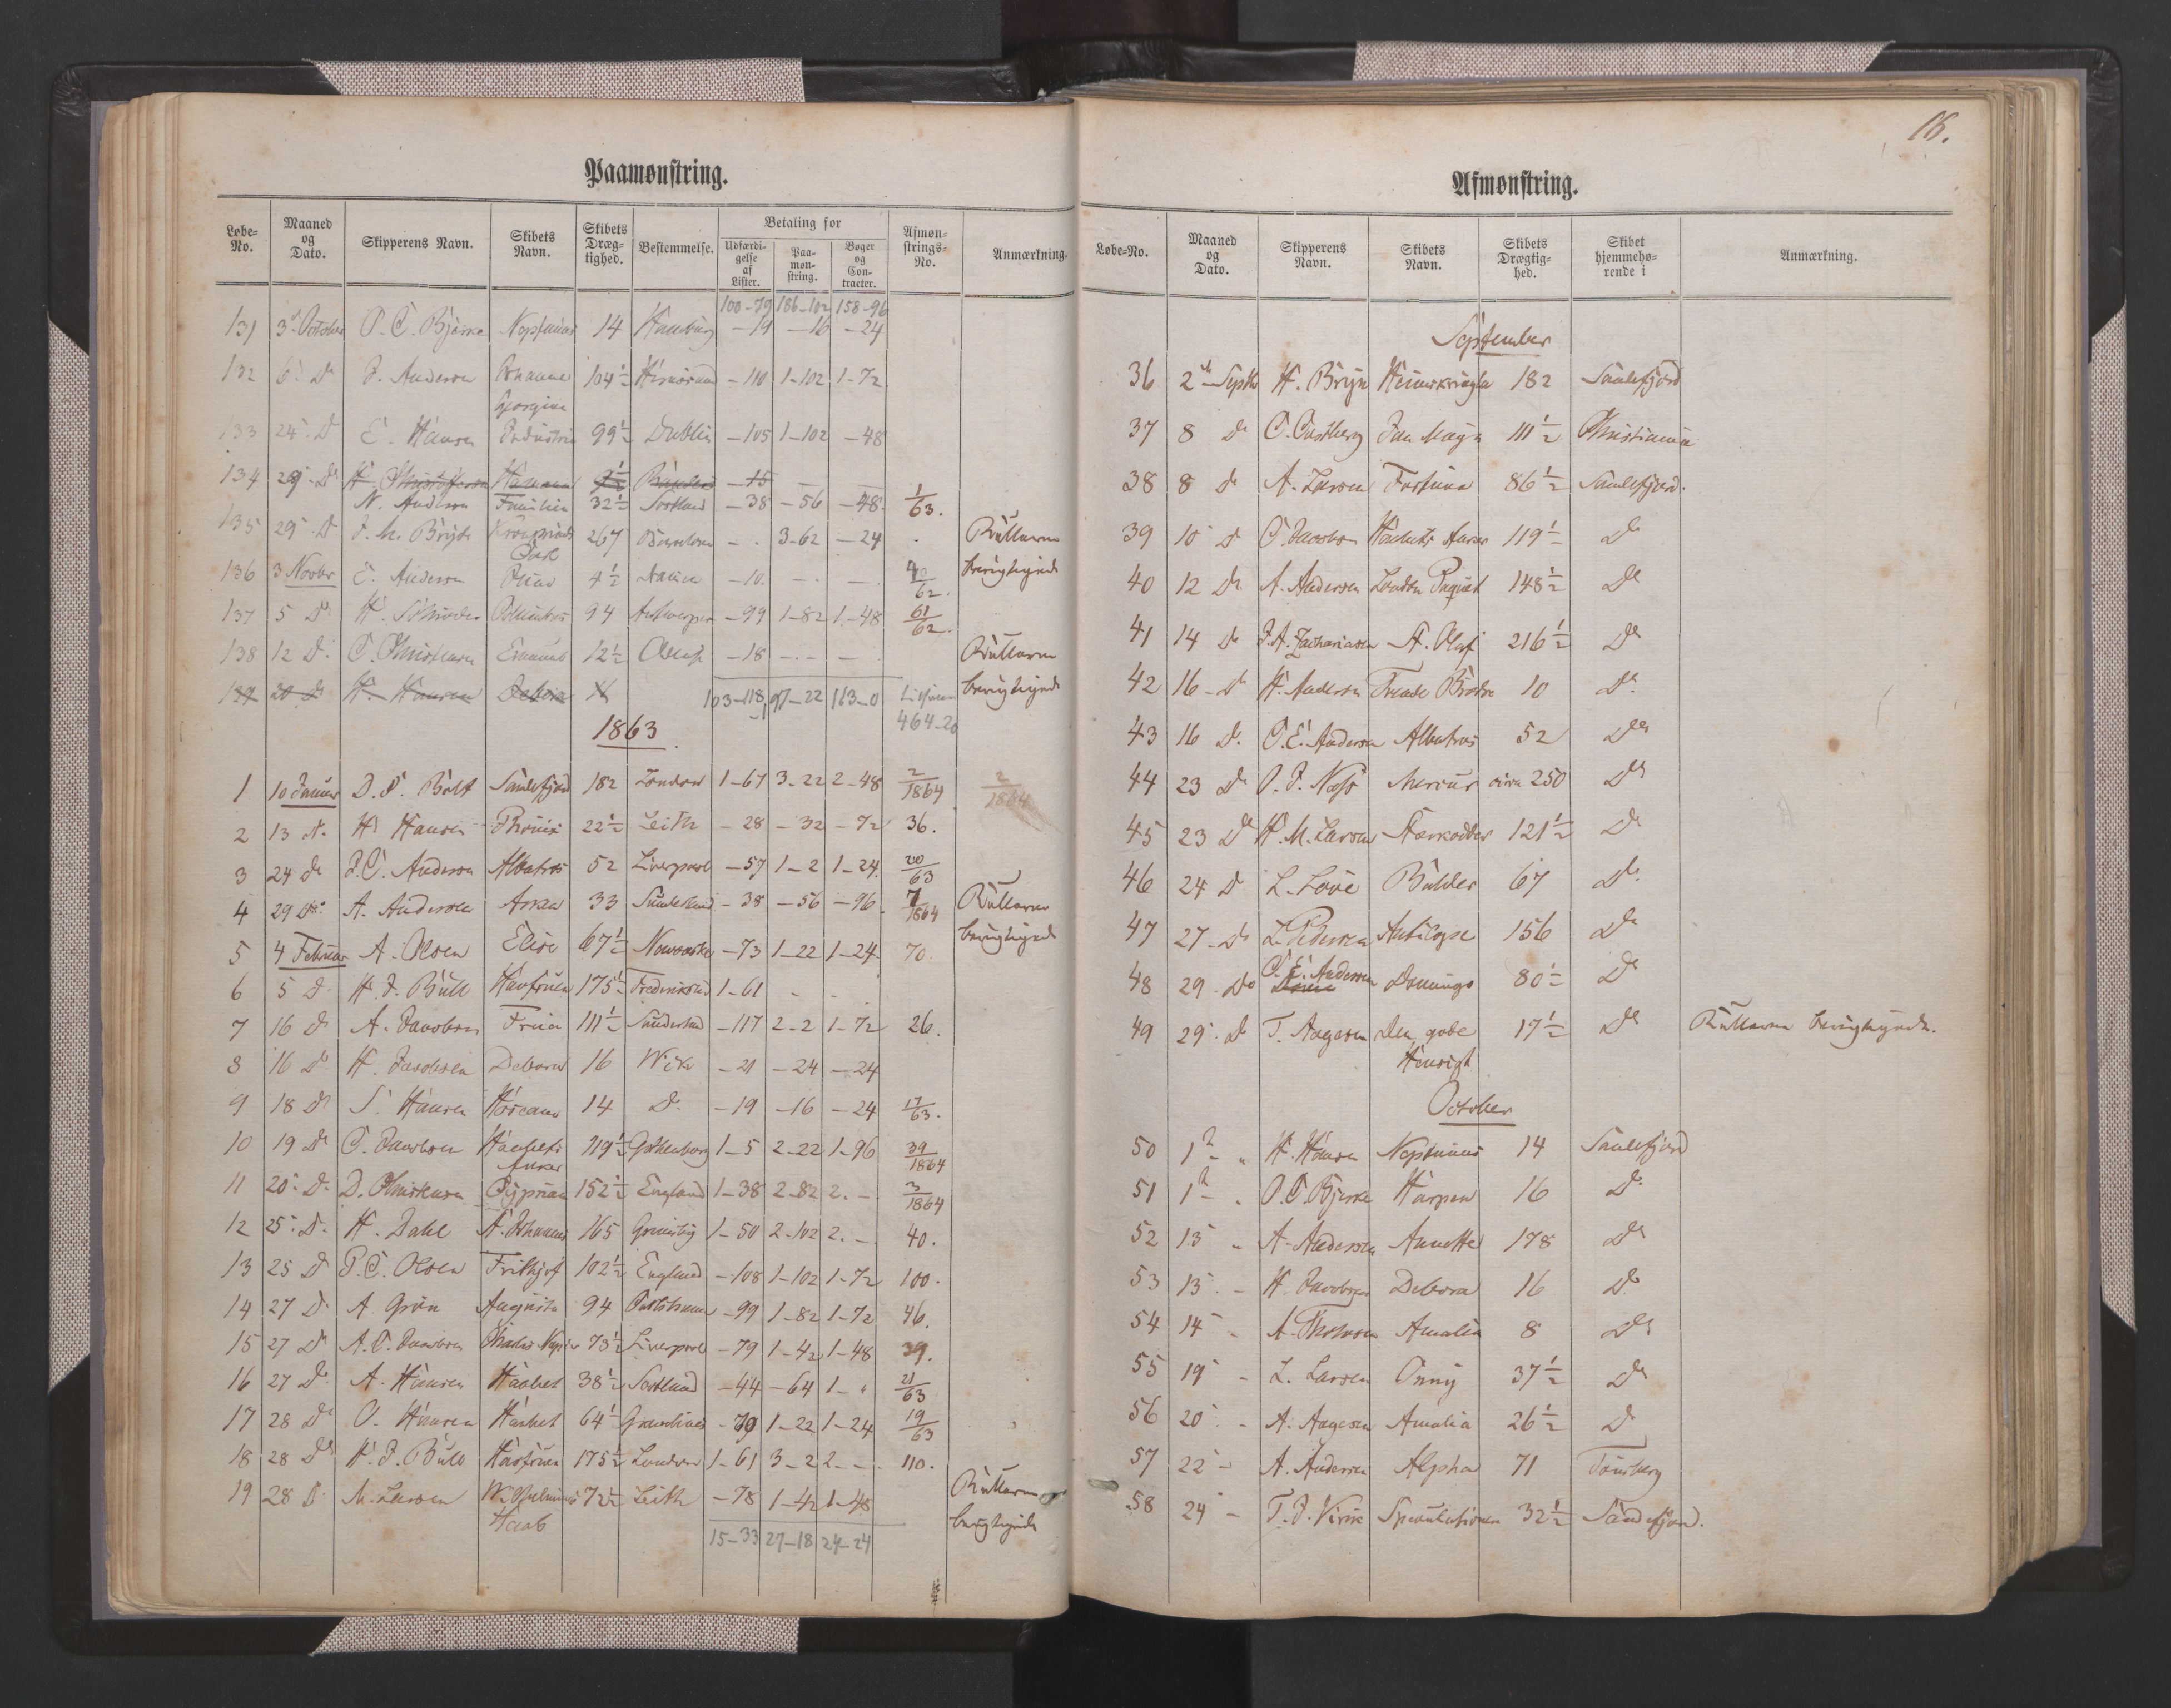 Paamønstring.
Løbe-No. Maaned og Dato. Skipperens Navn. Skibets Navn. Skibets Dræg-tighed. Bestemmelse. Betaling for Udfærdi-gelse af Lister. Paa-møn-string. Bøger og Con-tracter. Afmøn-strings-No. Anmærkning.
100-79 186-102 158-96
131 3d October P. C. Bjerke Neptunus 14 Hamburg -19 -16 -24
132 6 D J. Andersen Johanne Georgine 104½ -110 1-102 1-72
133 24 D E. Hansen Industrie 99½ Dublin -105 1-102 -48
134 29 D H. Christoffersen -15
N. Andersen Familien 32½ Skotland -38 -56 -48 1/63.
135 29 D J. M. Bryde 267 - . 3-62 -24 . Rullerne
136 3 Novbr E. Andersen 4½ -10. - . - . 40/62. berigtigede
137 5 D H. Columbus 94 Antwerpen -99 1-82 1-48 61/62.
138 12 D C. Christensen 12½ -18 - . - - Rullerne
139 20 D H. Hansen Debora 16 103-118 197-22 163-0 berigtigede
464-20
1863.
1 10 Januar D. S. Bolt Sandefjord 182 London 1-67 3-22 2-48 2/1864 2/1864
2 13 D. H. Hansen 22½ Leith -28 -32 -72 36.
3 24 D J. C. Andersen Albatros 52 Liverpool -57 1-2 1-24. 20/63
4 29 D A. Andersen 33 Sunderland -38 -56 -96. 7/1864 Rullerne
5 4 Februar A. Olsen Elise 67½ Newcastle -73 1-22 1-24. 70. berigtigede
6 5 D H. J. Bull Havfruen 175½ Fredrikstad 1-61 - .
7 16 D A. Jacobsen Freia 111½ Sunderland -117 2-2 1-72 26.
8 16 D H. Jacobsen Debora 16 Wick -21 -24 -24
9 18 D S. Hansen 14 D. -19 -16 -24 17/63.
10 19 D C. Jacobsen Haabets Anker 119½ Gothenborg 1-5 2-22 1-96 39/1864
11 20 D D. Christensen Cyprian 152½ England 1-38 2-82 2. - 3/1864
12 25 D. H. Dahl St. Johannes 165 Grimsby 1-50 2-102 2. - . 40.
13 25 D P. C. Olsen Frithjof 102½ England -108 1-102 1-72 100.
14 27 D A. Grøn Augusta 94 -99 1-82 1-72 46.
15 27 D A. C. Jacobsen Charles Napier 73½ Liverpool -79 1-42 1-48 39.
16 27 D. A. Hansen Haabet 38½ Skotland -44 -64 1- " 21/63
17 28 D O. Hansen Haabet 64½ -70 1-22 1-24 19/63
18 28 D H. J. Bull Havfruen 175½ London 1-61 3-2 2. - . 110.
19 28 D. M. Larsen Wilhelmines Haab 72½ Leith -78 1-42 1-48 Rullerne
15-33 27-18 24-24 berigtigede
16.
Afmønstring.
Løbe-No. Maaned og Dato. Skipperens Navn. Skibets Navn. Skibets Drægtig-hed. Skibet hjemmehø-rende i Anmærkning.
September
36 2d Septbr H. Bryn Heimskringla 182 Sandefjord
37 8 D C. Castberg Jan Mayn 111½ Christiania
38 8 D A. Larsen Fortuna 86½ Sandefjord.
39 10 D C. Jacobsen Haabets Anker 119½ D
40 12 D A. Andersen London Paquet 148½ D
41 14 D J. A. Zachariasen St. Olaf 216½ D
42 16 D H. Andersen Trende Brødre 10 D
43 16 D. C. E. Andersen Albatros 52 D
44 23 D O. J. Næss Mercur circa 250 D
45 23 D H. M. Larsen Stærkodder 121½ D
46 24 D L. Love Balder 67 D.
47 27 D L. Pedersen Antilope 156 D
48 29 D C. E. Andersen Dronningo 80½ D
49 29 D T. Aagesen Den gode Hensigt 17½ D Rullerne berigtigede.
October
50 1 " H. Hansen Neptunus 14 Sandefjord
51 1 " P. C. Bjerke Harpen 16 D
52 13 " A. Andersen Annette 178 D
53 13 - H. Jacobsen Debora 16 D
54 14 - A. Thorsen Amalia 8 D
55 19 - L. Larsen Onny 37½ D
56 20 - A. Aagesen Amalia 26½ D
57 22 - A. Andersen Alpha 71 Tønsberg
58 24 - T. J. Virik Speculationen 32½ Sandefjord.